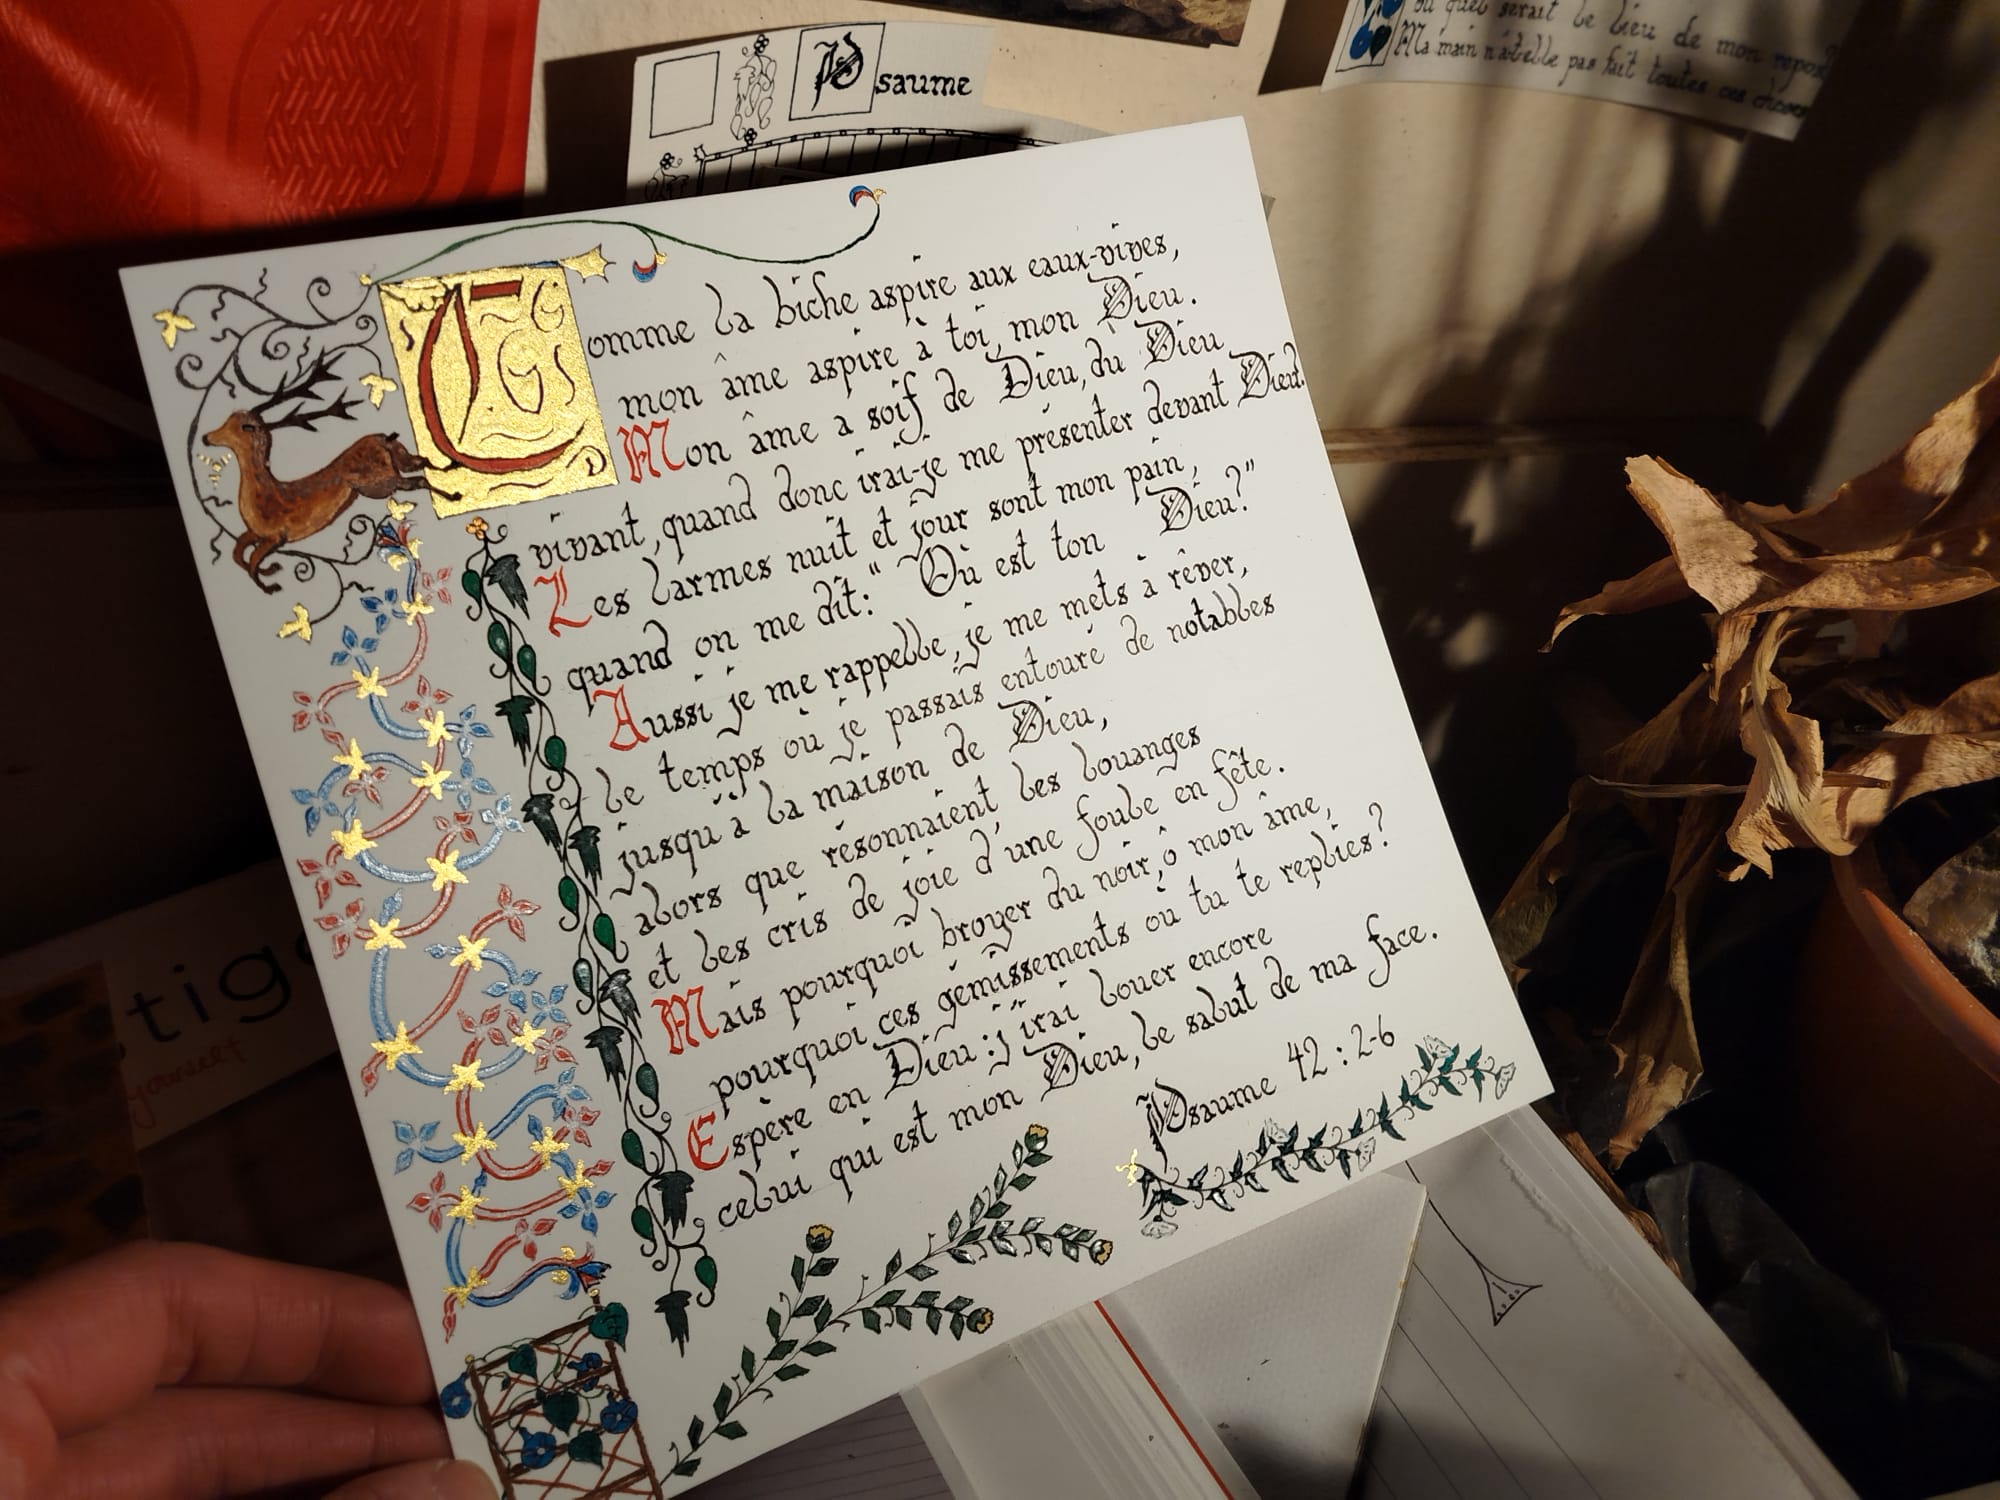 ou quel serait le lieu de mon repos?
Ma main n'a-t-elle pas fait toutes ces choses
Psaume
Comme la biche aspire aux eaux-vives,
mon âme aspire à toi, mon Dieu.
Mon âme a soif de Dieu, du Dieu
vivant, quand donc irai-je me présenter devant Dieu?
Les larmes nuit et jour sont mon pain,
quand on me dit: "Où est ton Dieu?"
Aussi je me rappelle, je me mets à rêver,
le temps où je passais entouré de notables
jusqu'à la maison de Dieu,
alors que résonnaient les louanges
et les cris de joie d'une foule en fête.
Mais pourquoi broyer du noir, ô mon âme,
pourquoi ces gémissements où tu te replies?
Espère en Dieu: j'irai louer encore
celui qui est mon Dieu, le salut de ma face.
Psaume 42:2-6
tig
yourself